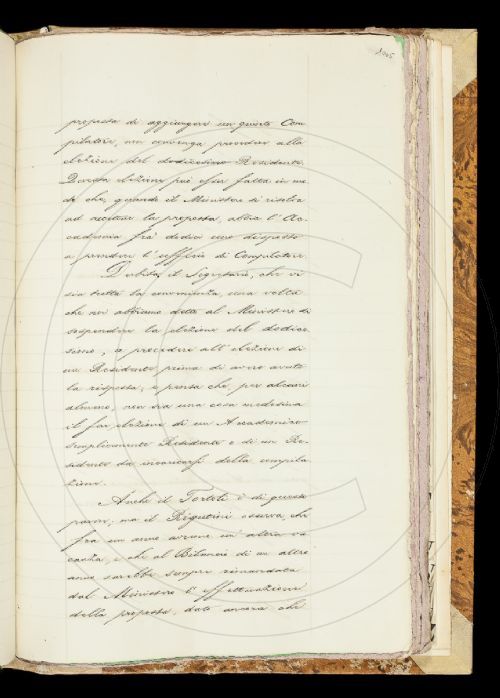 1005
proposta di aggiungere un quinto Com
pilatore, non convenga provveder alla
elezione del dodicesimo Residente.
Questa elezione può esser fatta in mo
do che, quando il Ministero si risolva
ad accettare la proposta, abbia l' Ac-
cademia fra' dodici uno disposto
a prendere l' ufficio di Compilatore.
Dubita il Segretario, che vi
sia tutta la convenienza, una volta
che noi abbiamo detto al Ministero di
sospendere la elezione del dodice-
simo, a procedere all' elezione di
un Residente prima di avere avuto
la risposta, e pensa che, per alcuni
almeno, non sia una cosa medesima
il far elezione di un Accademico
semplicemente Residente e di un Re-
sidente da incaricarsi della compila
zione.
Anche il Tortoli è di questo
parere, ma il Rigutini osserva, che
fra un anno avremo un' altra va
canza, e che al Bilancio di un altro
anno sarebbe sempre rimandata
dal Ministero l' effettuazione
della proposta, dato ancora che